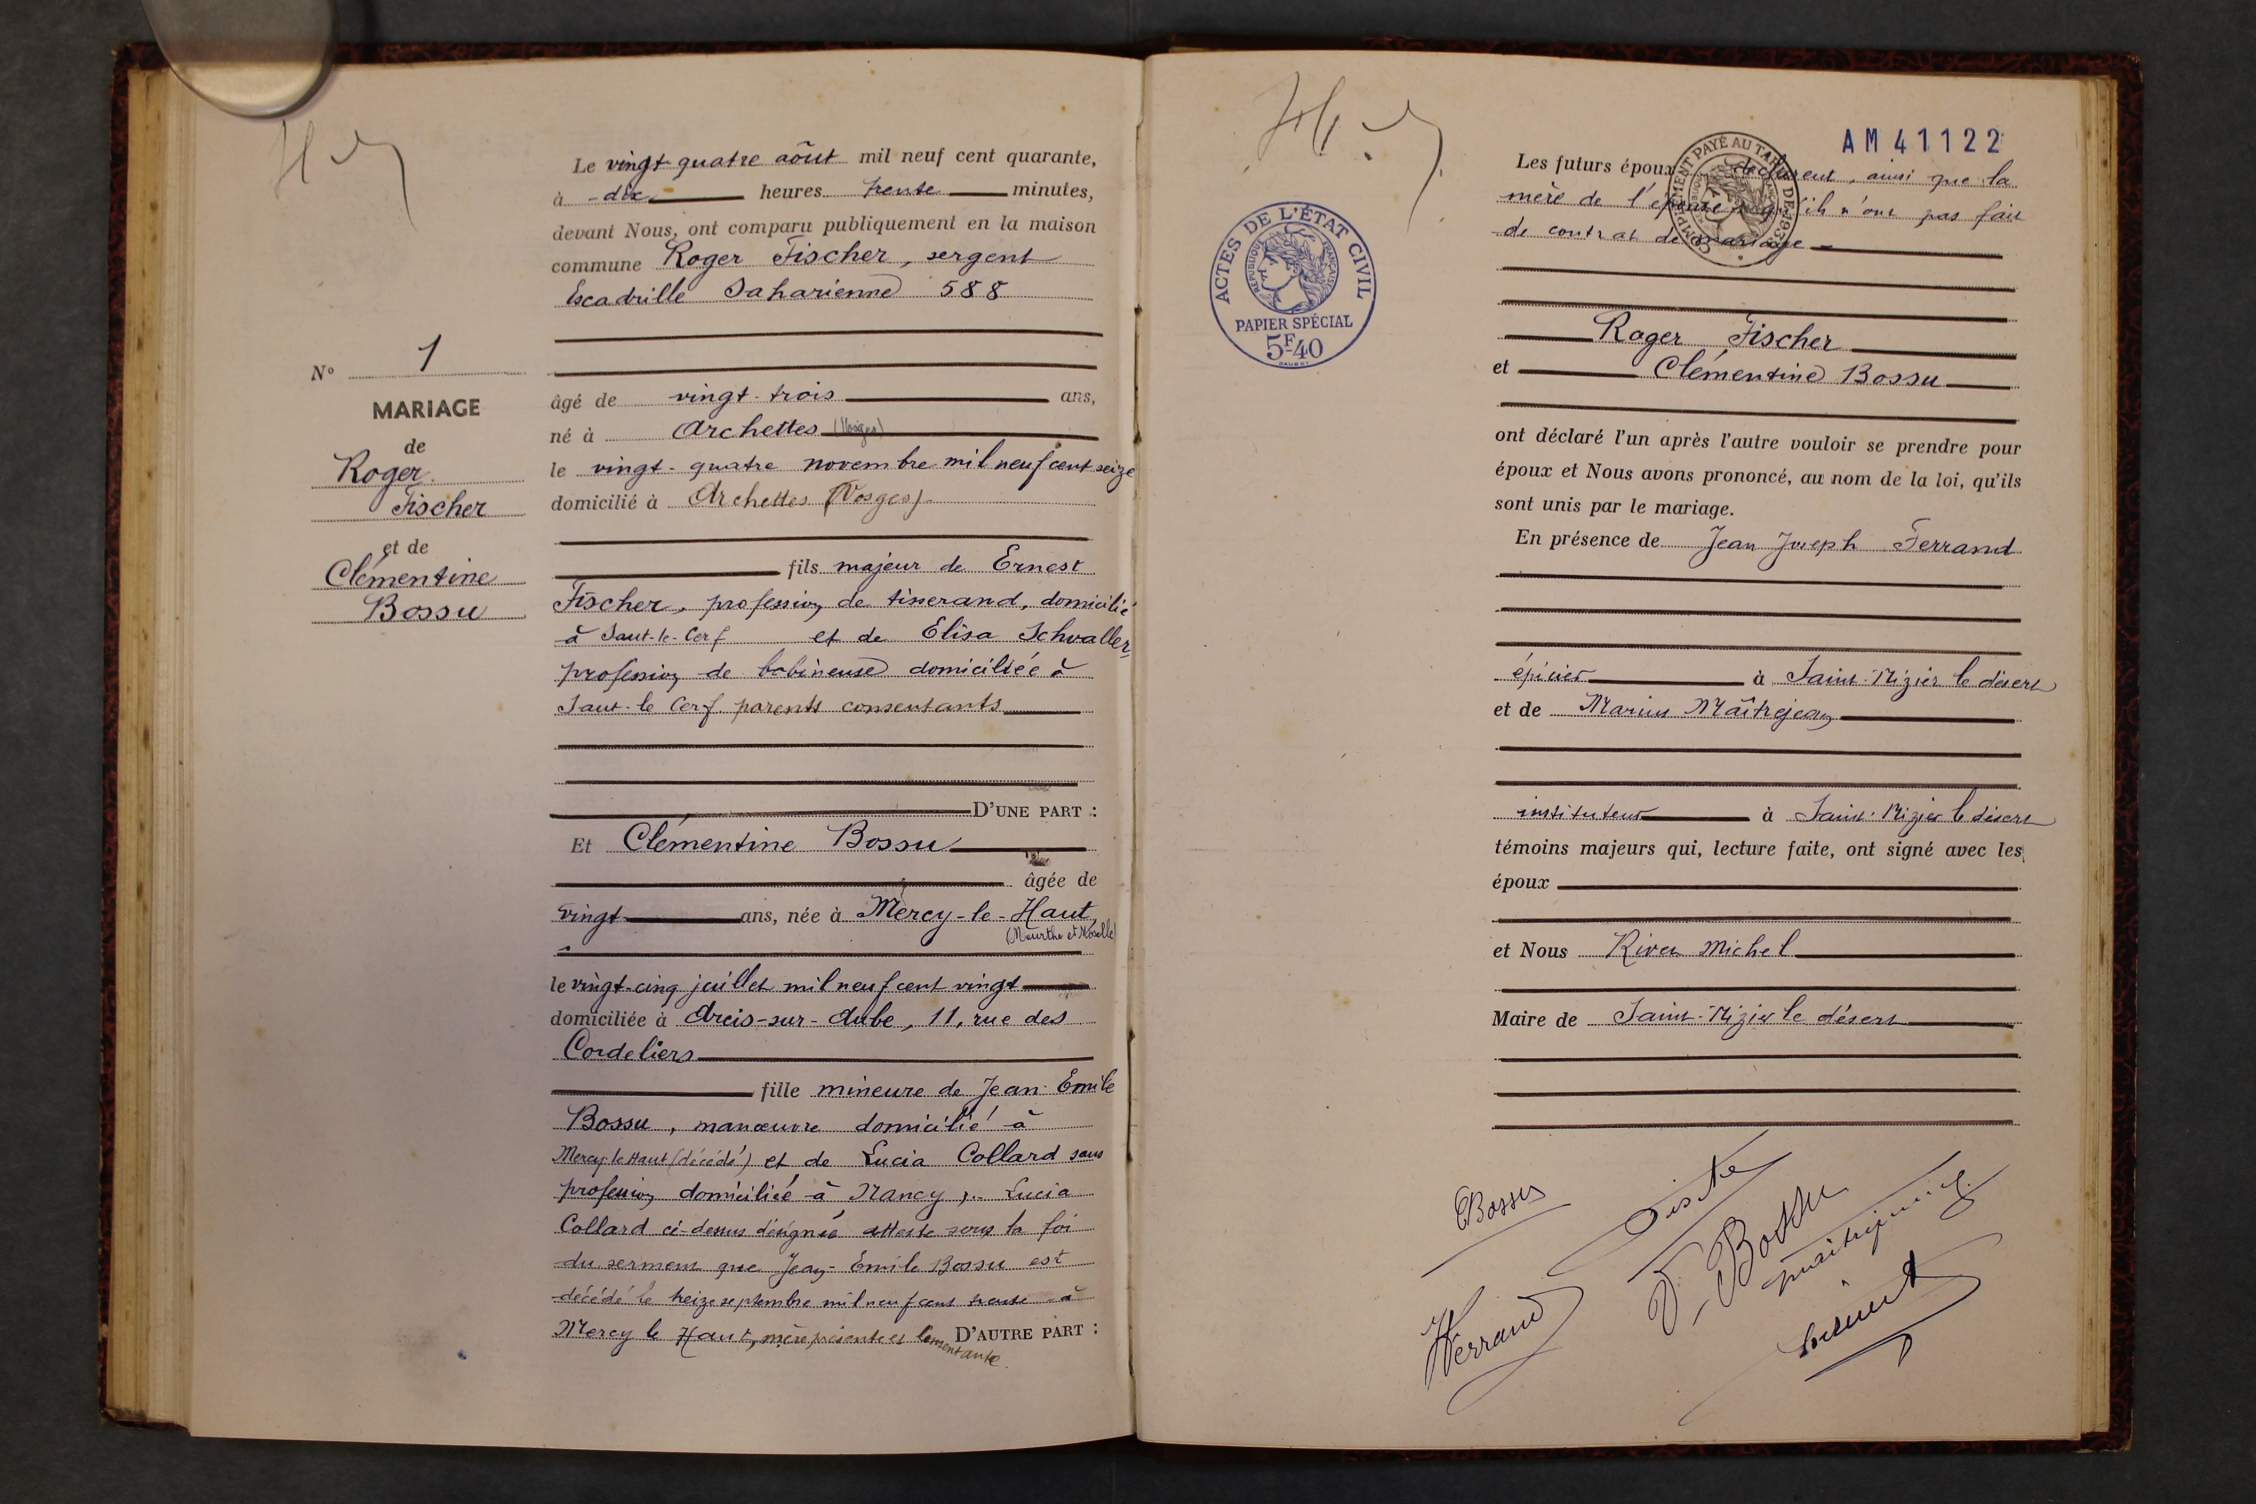 Le vingt quatre août mil neuf cent quarante,
à dix heures trente minutes,
devant Nous, ont comparu publiquement en la maison
commune Roger Fischer, sergent
Escadrille Saharienne 588
N° 1
MARIAGE
de
Roger
Fischer
et de
Clémentine
Bossu
âgé de vingt-trois ans,
né à Archettes (Vosges)
le vingt-quatre novembre mil neuf cent seize
domicilié à Archettes (Vosges)
fils majeur de Ernest
Fischer, profession de tisserand, domicilié
à Saut-le-Cerf et de Elisa Schvaller,
profession de bobineuse domiciliée à
Saut-le Cerf parents consentants
D'UNE PART :
Et Clémentine Bossu
âgée de
vingt ans, née à Mercy-le-Haut
(Meurthe et Moselle)
le vingt-cinq juillet mil neuf cent vingt
domiciliée à Arcis-sur-Aube, 11, rue des
Cordeliers
fille mineure de Jean Emile
Bossu, manœuvre domicilié à
Mercy-le Haut (décédé) et de Lucia Collard sans
profession domiciliée à Nancy, Lucia
Collard ci-dessus désignée atteste sous la foi
du serment que Jean-Emile Bossu est
décédé le treize septembre mil neuf cent trente à
Mercy le Haut, mère présente et D'AUTRE PART :
AM 41122
COMPLÉMENT PAYÉ AU TARIF DE 193
Les futurs époux déclarent, ainsi que la
mère de l'épouse, qu'ils n'ont pas fait
de contrat de mariage
ACTES DE L'ÉTAT CIVIL
RÉPUBLIQUE FRANÇAISE
PAPIER SPÉCIAL
5F40
Roger Fischer
et Clémentine Bossu
ont déclaré l'un après l'autre vouloir se prendre pour
époux et Nous avons prononcé, au nom de la loi, qu'ils
sont unis par le mariage.
En présence de Jean Joseph Ferrand
épicier à Saint-Nizier le désert
et de Marius Maîtrejean
instituteur à Saint-Nizier le désert
témoins majeurs qui, lecture faite, ont signé avec les
époux
et Nous Rivet Michel
Maire de Saint-Nizier le désert
Bossu
Ferrand
Bossu